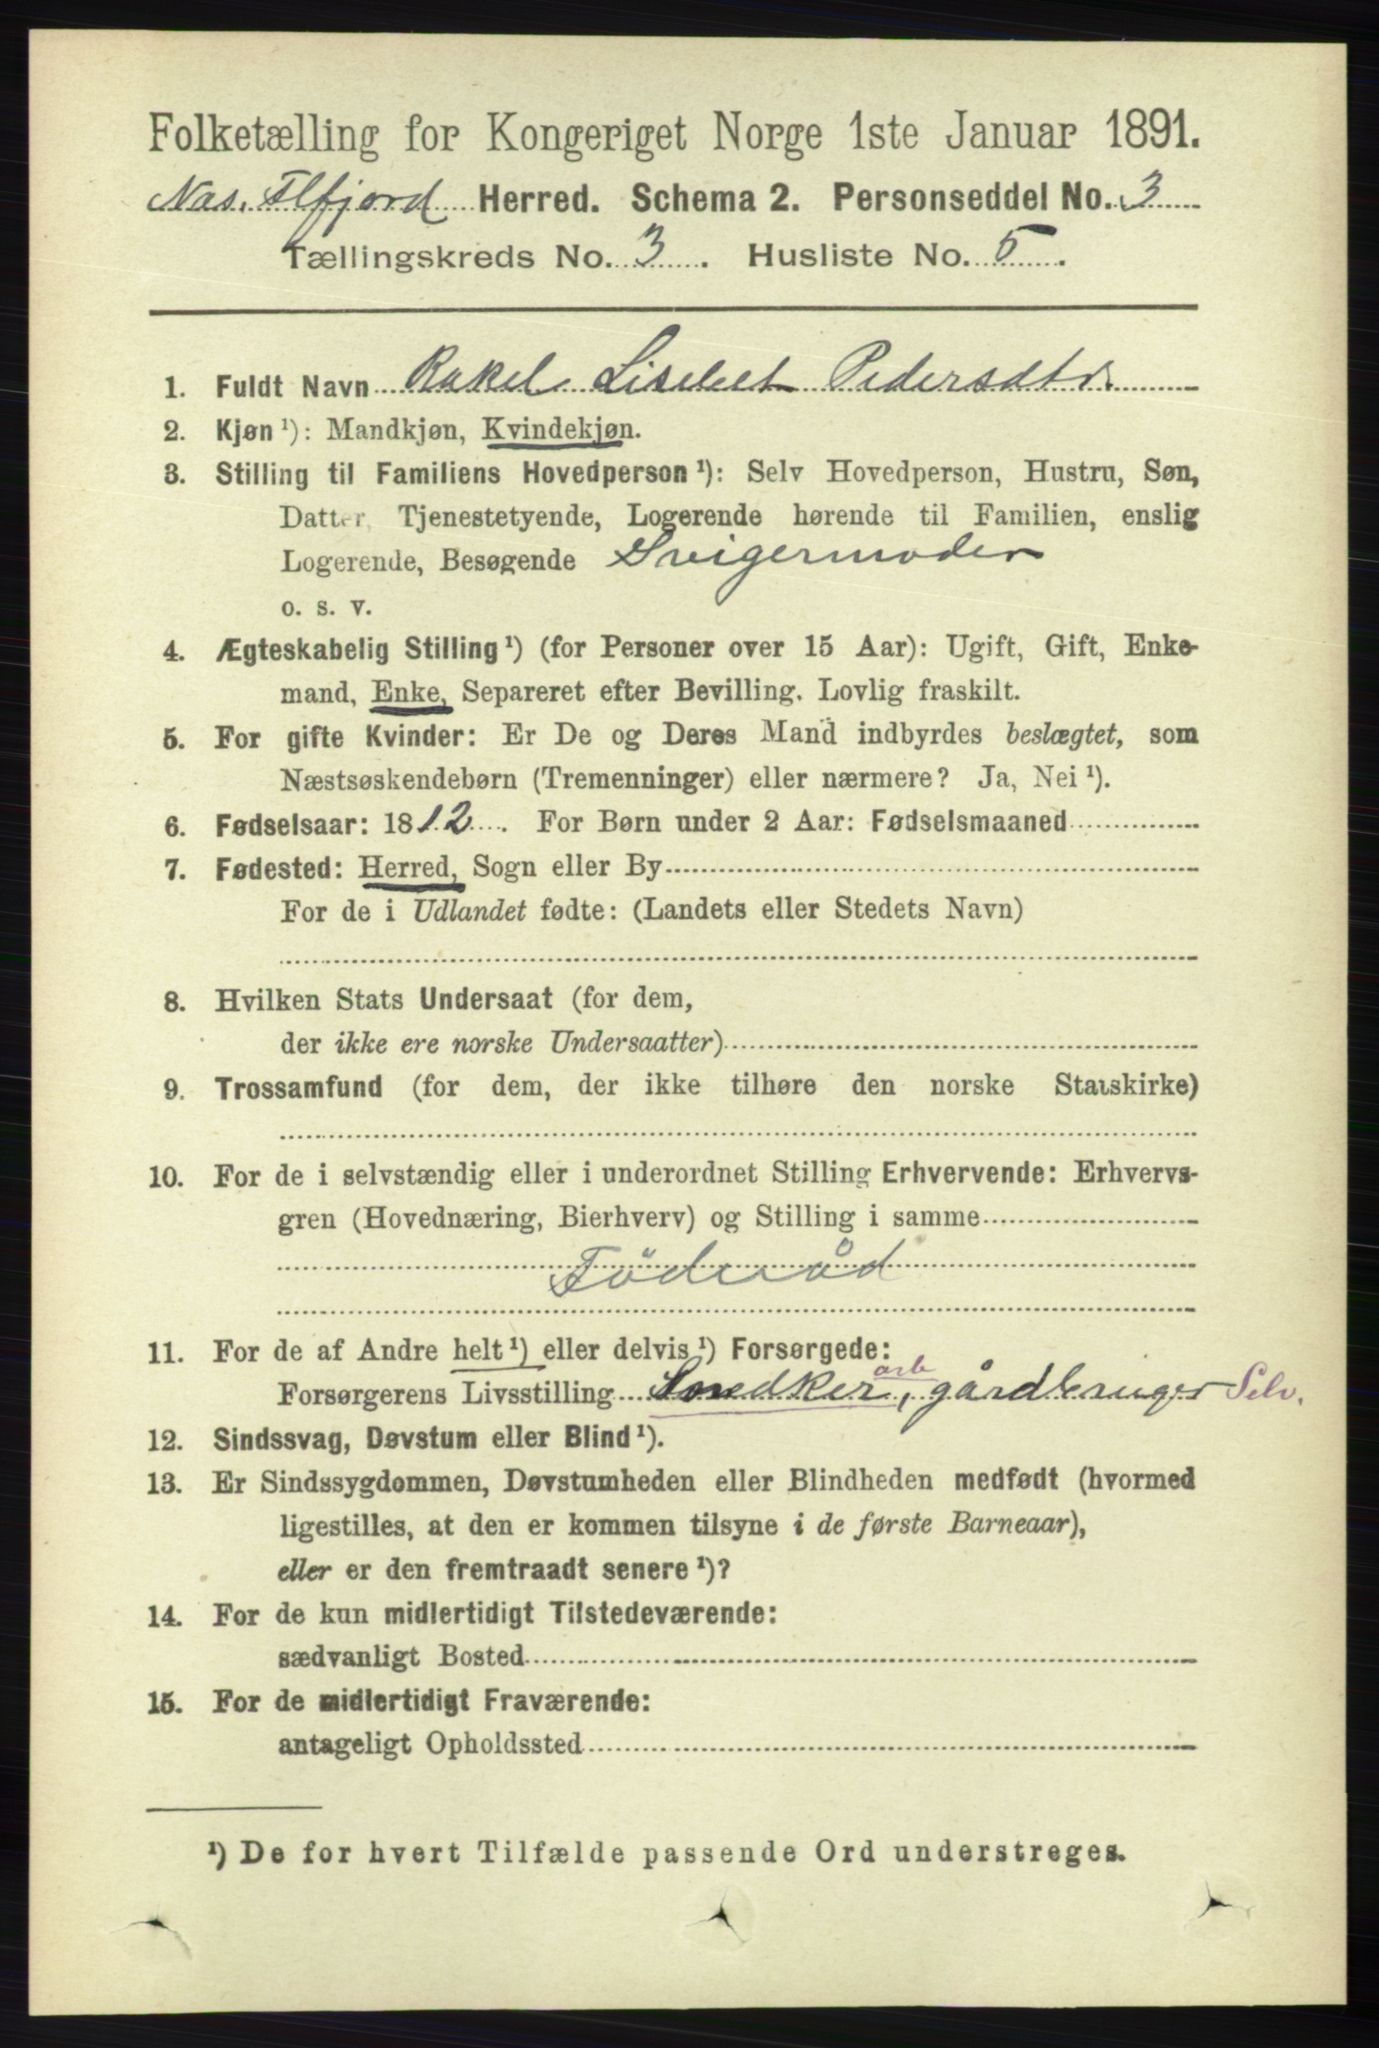 Folketælling for Kongeriget Norge 1ste Januar 1891.
Nas. Flfjord Herred. Schema 2. Personseddel No. 3
Tællingskreds No. 3. Husliste No. 5.
1. Fuldt Navn Rakel Lisebet Pedersdtr.
2. Kjøn ¹): Mandkjøn, Kvindekjøn.
3. Stilling til Familiens Hovedperson ¹): Selv Hovedperson, Hustru, Søn,
Datter, Tjenestetyende, Logerende hørende til Familien, enslig
Logerende, Besøgende Svigermoder
o. s. v.
4. Ægteskabelig Stilling ¹) (for Personer over 15 Aar): Ugift, Gift, Enke-
mand, Enke, Separeret efter Bevilling. Lovlig fraskilt.
5. For gifte Kvinder: Er De og Deres Mand indbyrdes beslægtet, som
Næstsøskendebørn (Tremenninger) eller nærmere? Ja, Nei ¹).
6. Fødselsaar: 1812. For Børn under 2 Aar: Fødselsmaaned
7. Fødested: Herred, Sogn eller By
For de i Udlandet fødte: (Landets eller Stedets Navn)
8. Hvilken Stats Undersaat (for dem,
der ikke ere norske Undersaatter)
9. Trossamfund (for dem, der ikke tilhøre den norske Statskirke)
10. For de i selvstændig eller i underordnet Stilling Erhvervende: Erhvervs-
gren (Hovednæring, Bierhverv) og Stilling i samme
Föderåd
11. For de af Andre helt ¹) eller delvis ¹) Forsørgede:
Forsørgerens Livsstilling Snedker arb, gårdbruger Selv.
12. Sindssvag, Døvstum eller Blind ¹).
13. Er Sindssygdommen, Døvstumheden eller Blindheden medfødt (hvormed
ligestilles, at den er kommen tilsyne i de første Barneaar),
eller er den fremtraadt senere ¹)?
14. For de kun midlertidigt Tilstedeværende:
sædvanligt Bosted
15. For de midlertidigt Fraværende:
antageligt Opholdssted
¹) De for hvert Tilfælde passende Ord understreges.